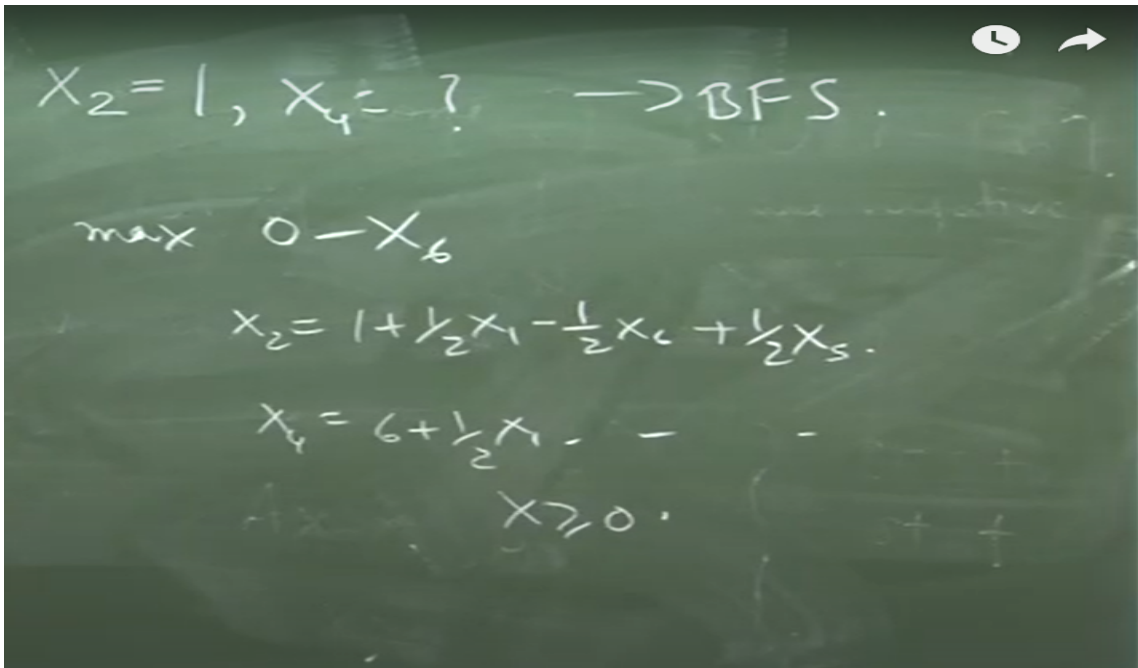 X₂ = 1, X₄ = ? → BFS.
max 0 - X₆
X₂ = 1 + 1/2 X₁ - 1/2 X₆ + 1/2 X₅.
X₄ = 6 + 1/2 X₁ - - -
X ≥ 0.